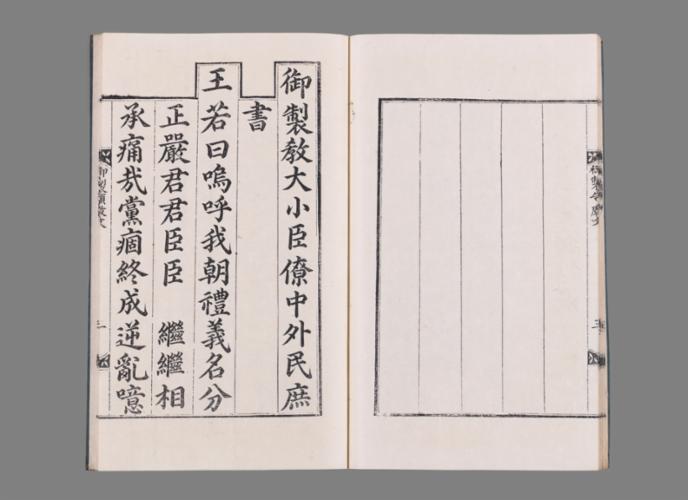 御製教大小臣僚中外民庶
書
王若曰嗚呼我朝禮義名分
正嚴君君臣臣 繼繼相
承痛哉黨痼終成逆亂噫